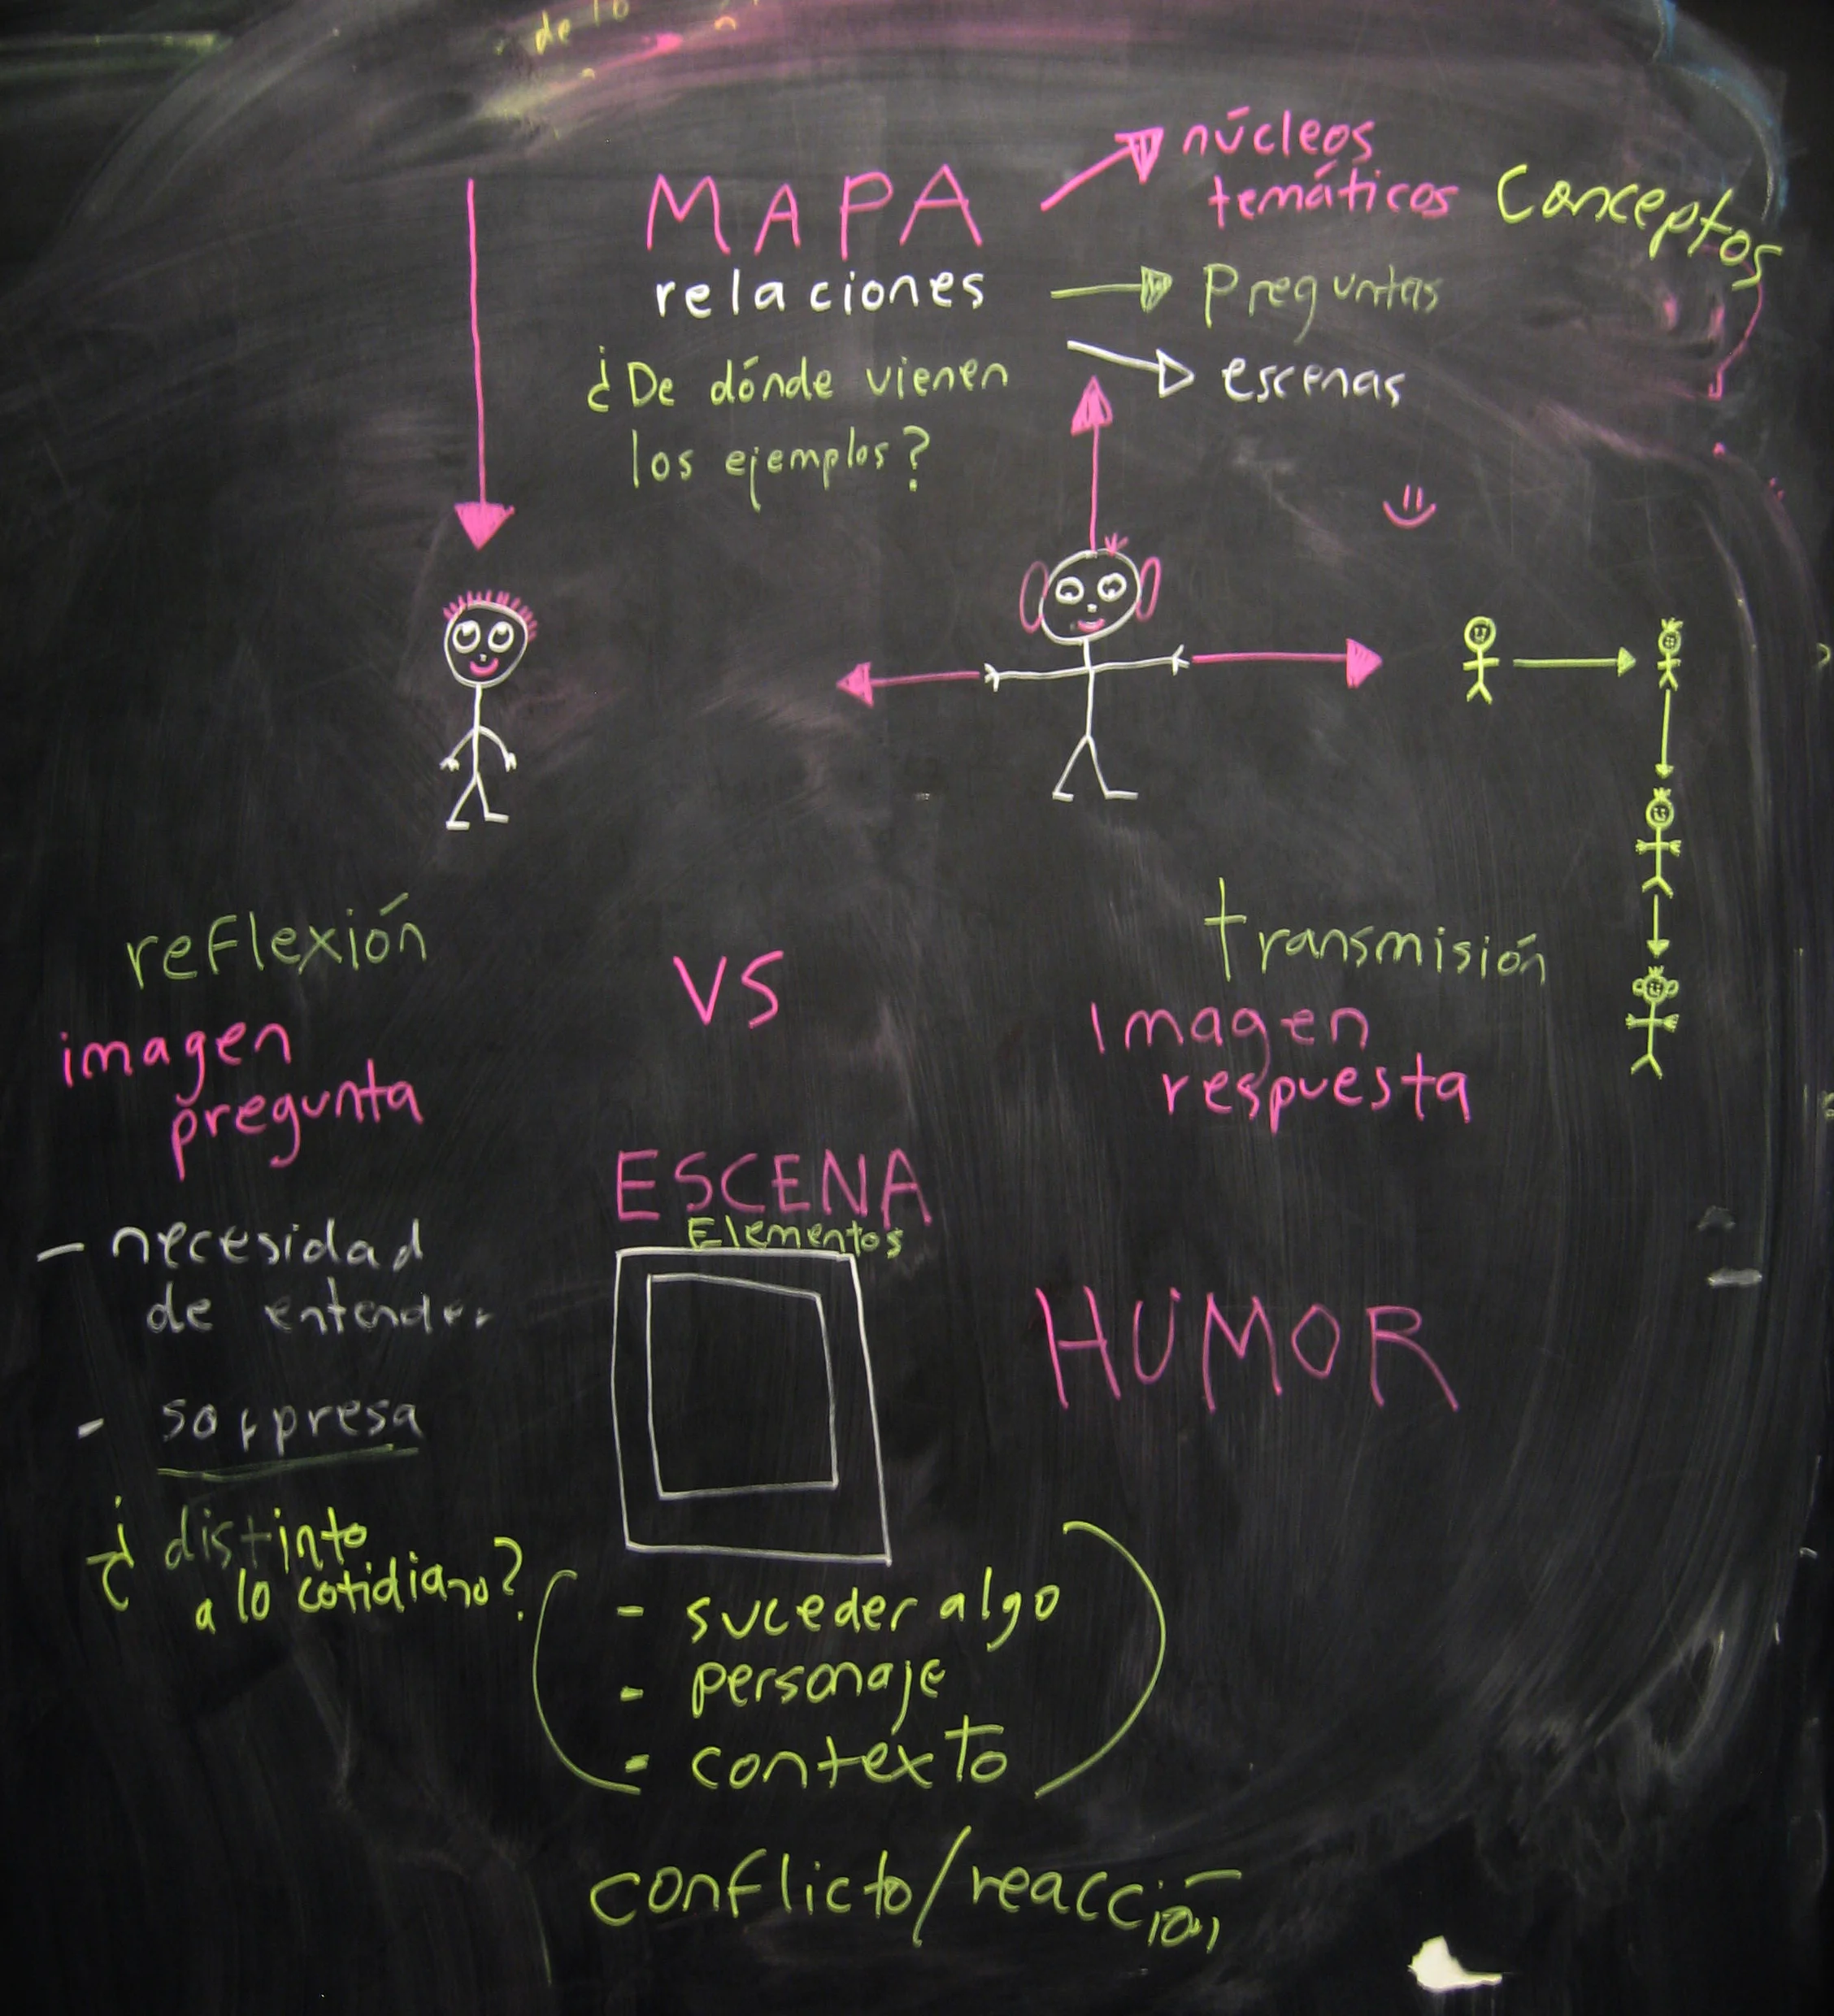 de lo
MAPA
relaciones
¿De dónde vienen
los ejemplos?
núcleos
temáticos
Conceptos
Preguntas
escenas
reflexión
vs
transmisión
imagen
pregunta
Imagen
respuesta
- necesidad
de entender
- sorpresa
¿distinto
a lo cotidiano?
ESCENA
Elementos
HUMOR
- suceder algo
- personaje
- contexto
conflicto/reacción